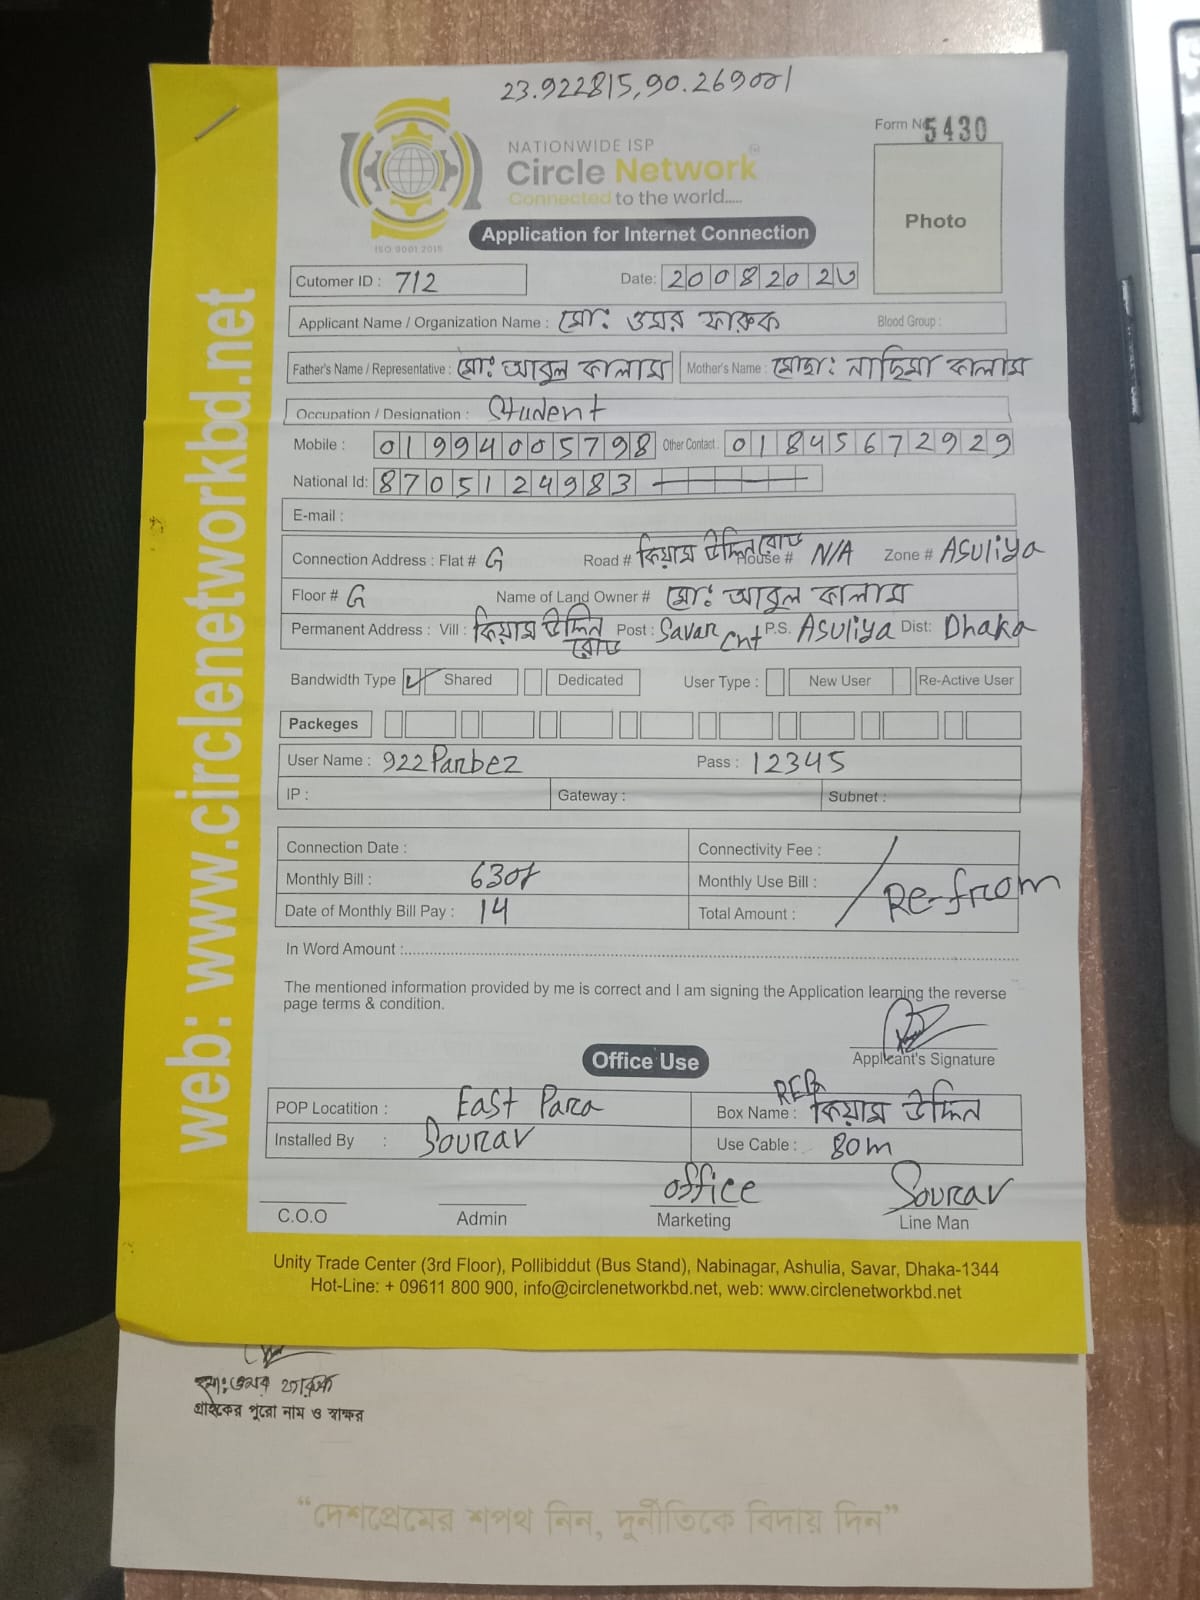 23.922815,90.269001
Form No 5430
NATIONWIDE ISP
Circle Network
Connected to the world.....
ISO 9001:2015
Application for Internet Connection
Photo
Cutomer ID : 712 Date: 20082020
Applicant Name / Organization Name : মো: ওমর ফারুক Blood Group :
Father's Name / Representative : মো: আবুল কালাম Mother's Name : মোছা: নাছিমা কালাম
Occupation / Designation : Student
Mobile : 01994005798 Other Contact : 01845672929
National Id: 8705124983
E-mail :
Connection Address : Flat # G Road # কিয়াম উদ্দিন রোড House # N/A Zone # Asuliya
Floor # G Name of Land Owner # মো: আবুল কালাম
Permanent Address : Vill : কিয়াম উদ্দিন রোড Post : Savar Cnt P.S. Asuliya Dist: Dhaka
Bandwidth Type Shared Dedicated User Type : New User Re-Active User
Packeges
User Name : 922Parbez Pass : 12345
IP : Gateway : Subnet :
Connection Date : Connectivity Fee :
Monthly Bill : 630/ Monthly Use Bill : Re-from
Date of Monthly Bill Pay : 14 Total Amount :
In Word Amount :
The mentioned information provided by me is correct and I am signing the Application learning the reverse
page terms & condition.
Applicant's Signature
Office Use
POP Locatition : East Para Box Name : কিয়াম উদ্দিন
Installed By : Sourav Use Cable : 80m
office Sourav
C.O.O Admin Marketing Line Man
Unity Trade Center (3rd Floor), Pollibiddut (Bus Stand), Nabinagar, Ashulia, Savar, Dhaka-1344
Hot-Line: + 09611 800 900, info@circlenetworkbd.net, web: www.circlenetworkbd.net
web: www.circlenetworkbd.net
মো: ওমর ফারুক
গ্রাহকের পুরো নাম ও স্বাক্ষর
“দেশপ্রেমের শপথ নিন, দুর্নীতিকে বিদায় দিন”